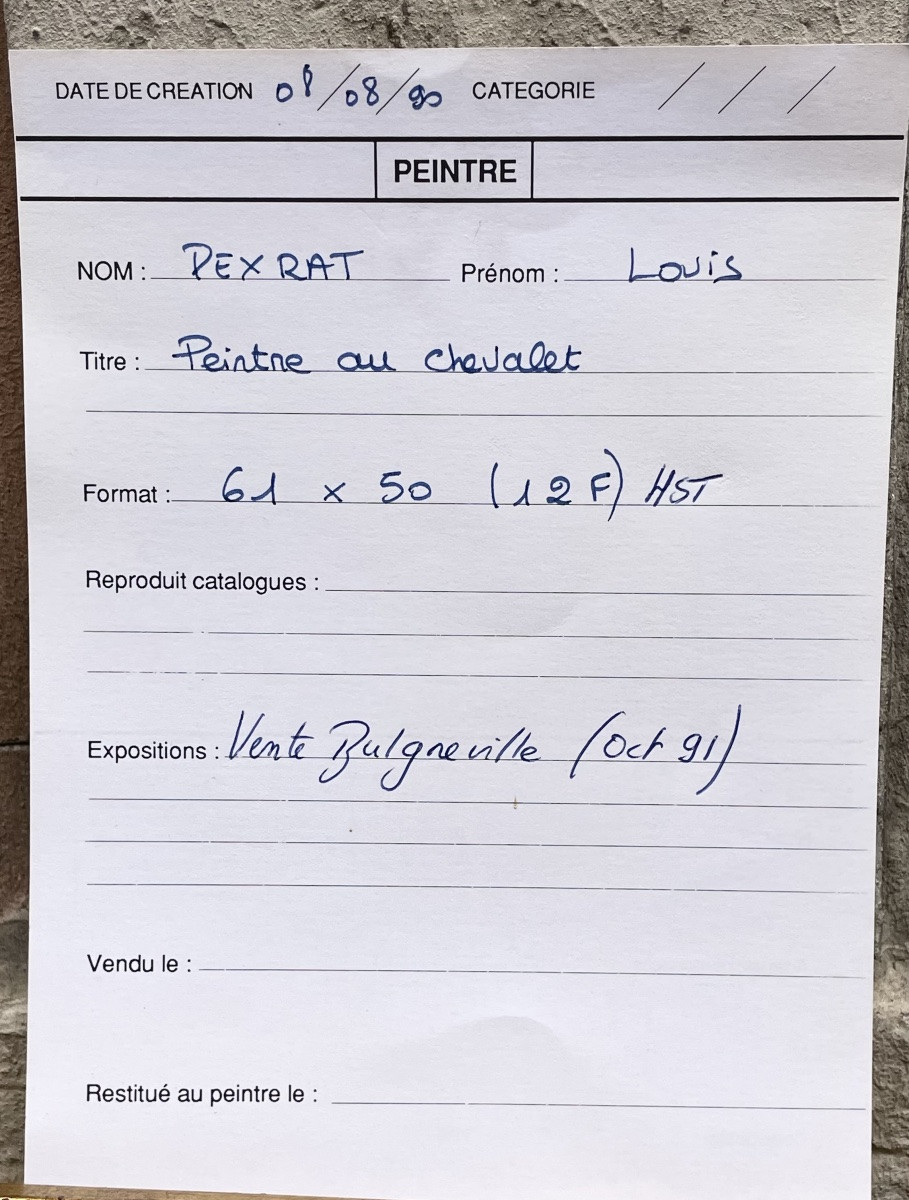 DATE DE CREATION 08/08/90 CATEGORIE / / /
PEINTRE
NOM : PEXRAT Prénom : Louis
Titre : Peintre au chevalet
Format : 61 x 50 (12 F) HST
Reproduit catalogues :
Expositions : Vente Bulgneville (Oct 91)
Vendu le :
Restitué au peintre le :